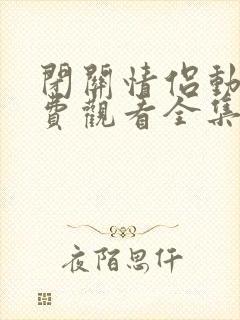 閉關情侶動
費觀看全集
夜陌思仟